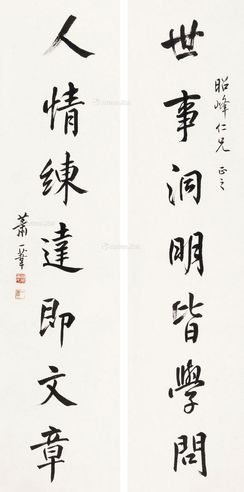 世事洞明皆學問
昭峰仁兄 正之
人情練達即文章
蕭一葦